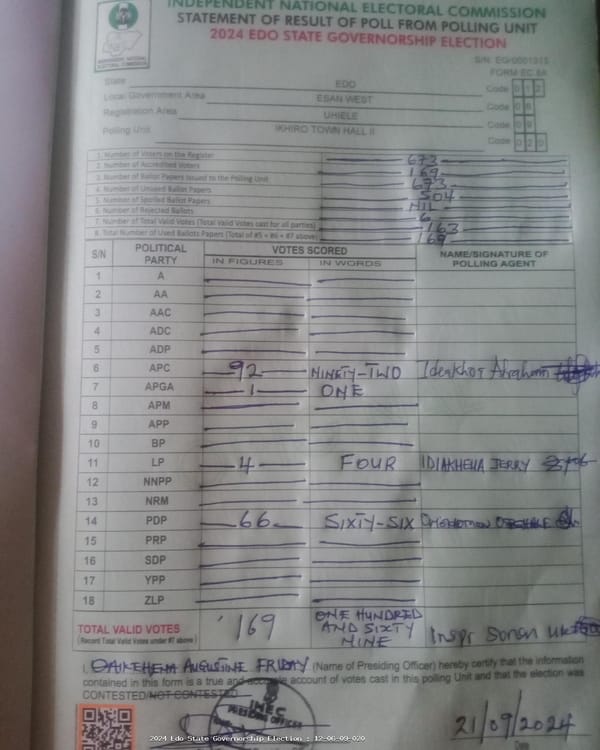 INDEPENDENT NATIONAL ELECTORAL COMMISSION
STATEMENT OF RESULT OF POLL FROM POLLING UNIT
2024 EDO STATE GOVERNORSHIP ELECTION
S/N: EG/0001315
FORM EC.8A
State EDO Code 0 1 2
Local Government Area ESAN WEST Code 0 6
Registration Area UHIELE Code 0 9
Polling Unit IKHIRO TOWN HALL II Code 0 2 0
1. Number of Voters on the Register 673
2. Number of Accredited Voters 169
3. Number of Ballot Papers Issued to the Polling Unit 673
4. Number of Unused Ballot Papers 504
5. Number of Spoiled Ballot Papers NIL
6. Number of Rejected Ballots 6
7. Number of Total Valid Votes (Total Valid Votes cast for all parties) 163
8. Total Number of Used Ballots Papers (Total of #5 + #6 + #7 above) 169
S/N POLITICAL PARTY VOTES SCORED NAME/SIGNATURE OF POLLING AGENT
IN FIGURES IN WORDS
1 A
2 AA
3 AAC
4 ADC
5 ADP
6 APC 92 NINETY-TWO Abraham
7 APGA 1 ONE
8 APM
9 APP
10 BP
11 LP 4 FOUR IDIAKHENA JERRY
12 NNPP
13 NRM
14 PDP 66 SIXTY-SIX
15 PRP
16 SDP
17 YPP
18 ZLP
TOTAL VALID VOTES 169 ONE HUNDRED AND SIXTY NINE Inspr
(Record Total Valid Votes under #7 above)
I, OAIKHENA AUGUSTINE FRIDAY (Name of Presiding Officer) hereby certify that the information
contained in this form is a true and accurate account of votes cast in this polling Unit and that the election was
CONTESTED/NOT CONTESTED
INEC
PRESIDING OFFICER
21/09/2024
2024 Edo State Governorship Election : 12-06-09-020